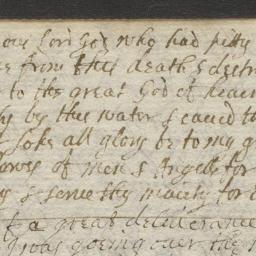 ous lord God who had pitty
e from this death & distr
to the great God of heav
by this water scaued to
sake all glory be to my g
owes of men & Angells for
& serve thy maiesty for
a great deliverance
I was goeing over the